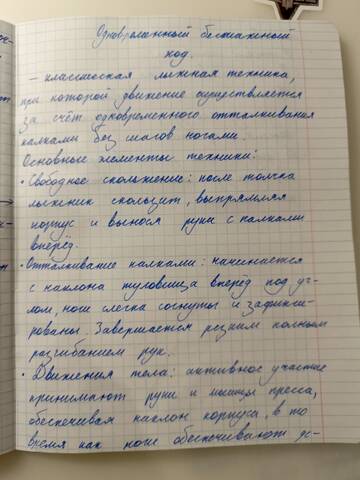 Одновременный бесшажный
ход.
— классическая лыжная техника,
при которой движение осуществляется
за счёт одновременного отталкивания
палками без шагов ногами.
Основные элементы техники:
• Свободное скольжение: после толчка
лыжник скользит, выпрямляя
корпус и вынося руки с палками
вперёд.
• Отталкивание палками: начинается
с наклона туловища вперёд под уг-
лом, ноги слегка согнуты и зафикси-
рованы. Завершается резким полным
разгибанием рук.
• Движения тела: активное участие
принимают руки и мышцы пресса,
обеспечивая наклон корпуса, в то
время как ноги обеспечивают